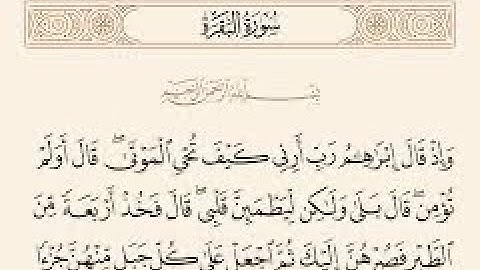 سُورَةُ البَقَرَةِ
بِسْمِ اللَّهِ الرَّحْمَٰنِ الرَّحِيمِ
وَإِذْ قَالَ إِبْرَاهِـۧمُ رَبِّ أَرِنِي كَيْفَ تُحْيِ الْمَوْتَىٰ ۖ قَالَ أَوَلَمْ
تُؤْمِن ۖ قَالَ بَلَىٰ وَلَٰكِن لِّيَطْمَئِنَّ قَلْبِي ۖ قَالَ فَخُذْ أَرْبَعَةً مِّنَ
الطَّيْرِ فَصُرْهُنَّ إِلَيْكَ ثُمَّ اجْعَلْ عَلَىٰ كُلِّ جَبَلٍ مِّنْهُنَّ جُزْءًا